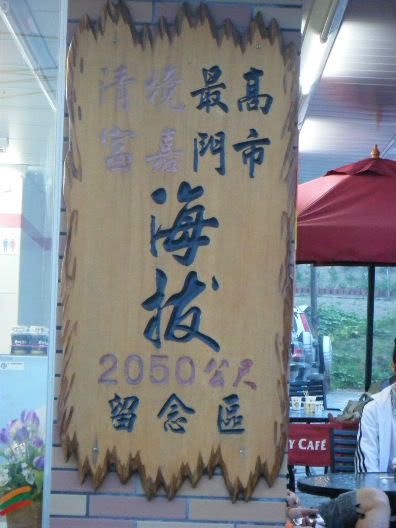 清境最高
富嘉門市
海拔
2050公尺
留念區
Y CAFÉ